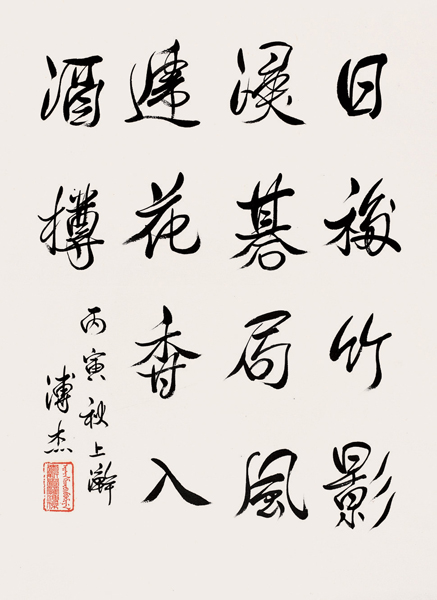 日移竹影
浸碁局風
遞花香入
酒樽
丙寅秋上澣
溥杰